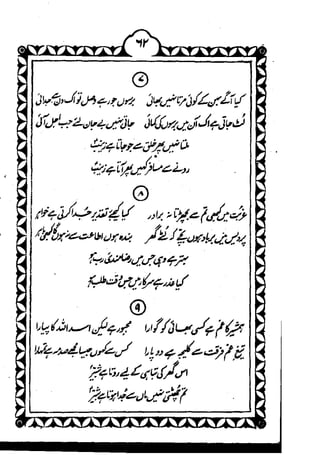 ۶۲
۷
کیا آگے بہن کے کوئی مرتا نہیں بھائی برسوں جو رہے وصل تو اک دن ہے جدائی
لٹ جاتی ہے اک آن میں برسوں کی کمائی جاتی نہیں بے جان لئے جب اجل آئی
ملتا نہیں پھر خلق سے جو جاتا ہے زینبؑ
روٹے سے مسافر کہیں پھر آتا ہے زینبؑ
۸
غربت میں کبھی تم سے بچھڑتا نہ برادر کیا کیجے تقدیر جدا کرتی ہے خواہر
پردیس میں برباد ہوں بچے کہ لٹے گھر بندہ ہوں اطاعت سے نہ ہوں گا کبھی باہر
بہتر ہے وہی جس میں رضامندی رب ہو
کیا عذر ہے سرکار میں جس وقت طلب ہو
۹
ہمشیر کا غم ہے کسی بھائی کو گوارا مجبور ہے لیکن اسداللہ کا پیارا
تیغ غم فرقت سے کلیجہ ہے دو پارا کس سے کہوں جیسا مجھے صدمہ ہے تمہارا
اس گھر کی تباہی کے لیے روتا ہے شبیرؑ
تم چھٹتی نہیں ماں سے جدا ہوتا ہے شبیرؑ